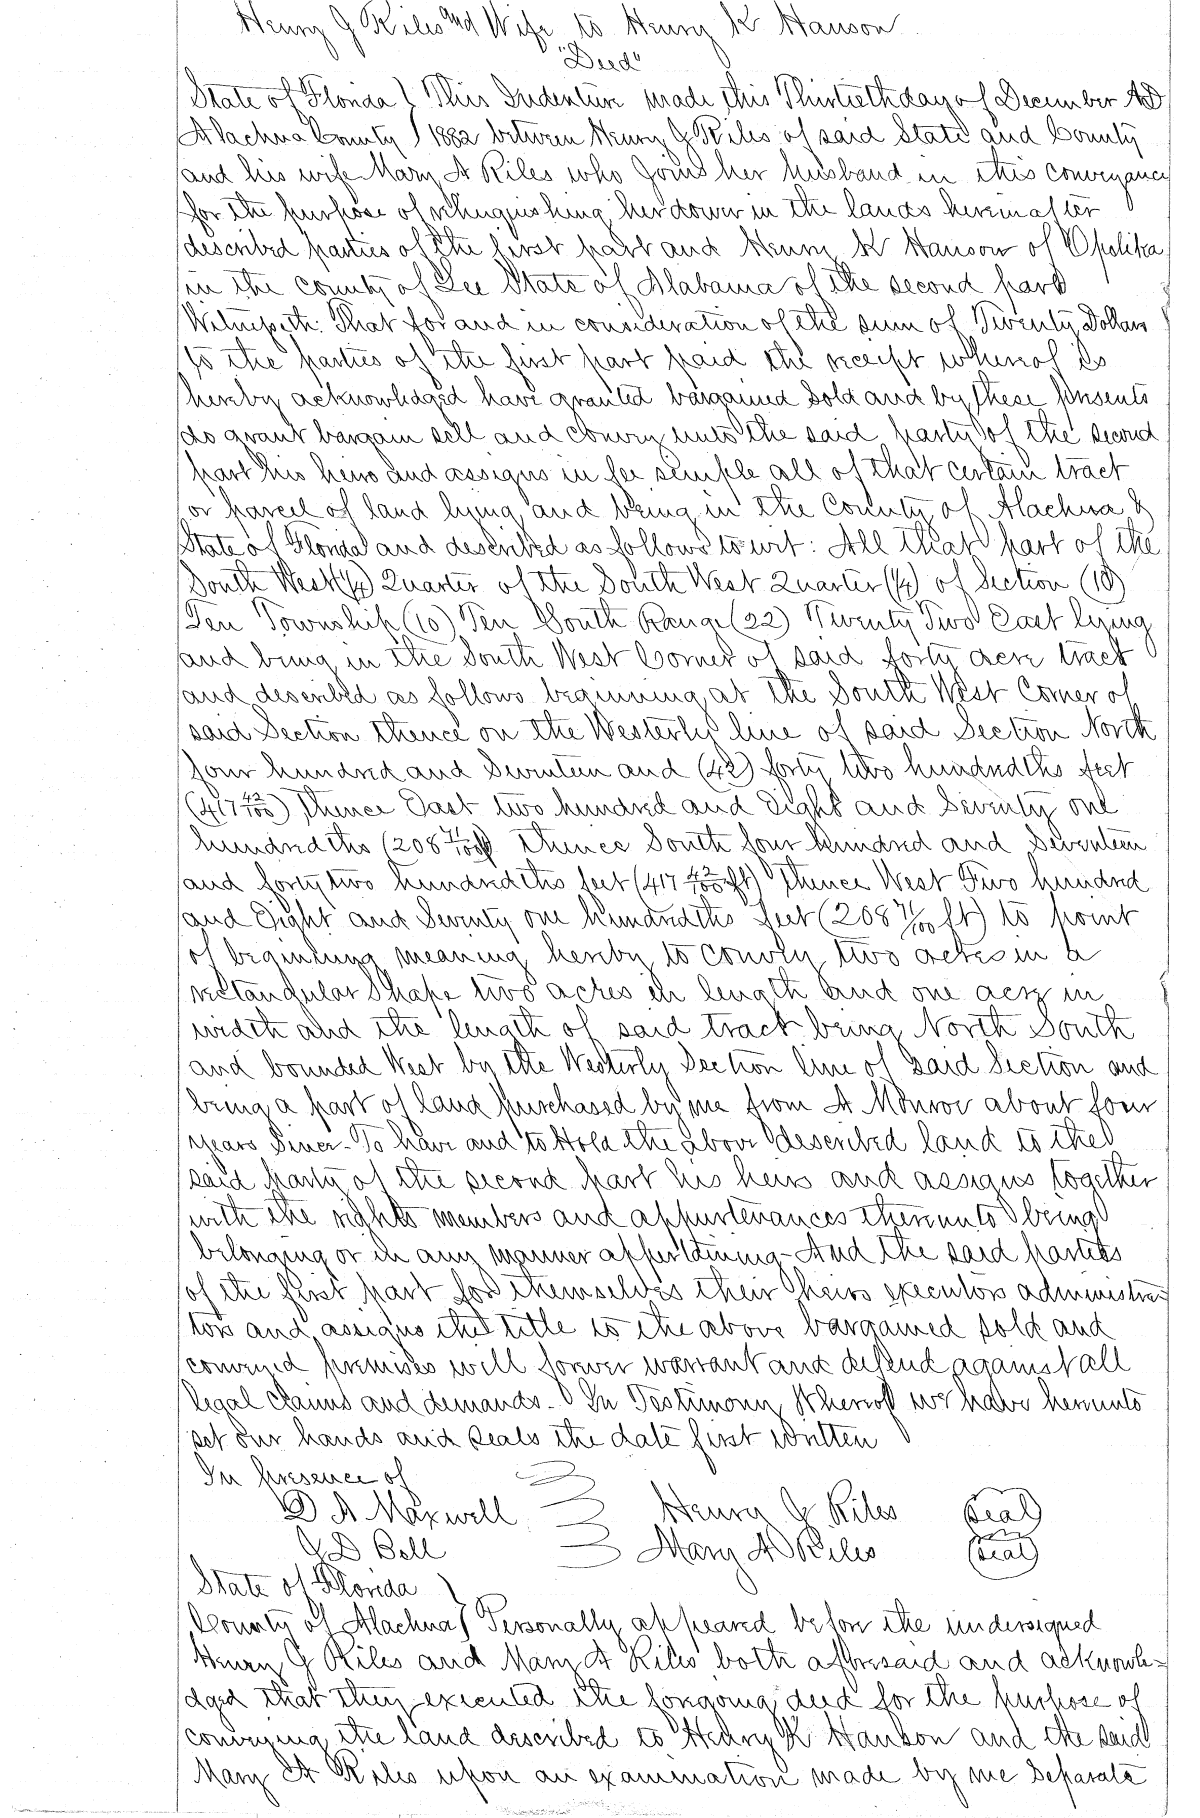 Henry G Riles and Wife to Henry K Hanson
"Deed"
State of Florida } This Indenture made this Thirtieth day of December AD
Alachua County } 1882 between Henry G Riles of said State and County
and his wife Mary A Riles who Joins her husband in this conveyance
for the purpose of relinquishing her dower in the lands hereinafter
described parties of the first part and Henry K Hanson of Opolika
in the county of Lee State of Alabama of the second part
Witnesseth: That for and in consideration of the sum of Twenty Dollars
to the parties of the first part paid the receipt whereof is
hereby acknowledged have granted bargained sold and by these presents
do grant bargain sell and convey unto the said party of the second
part his heirs and assigns in fee simple all of that certain tract
or parcel of land lying and being in the County of Alachua &
State of Florida and described as follows to wit: All that part of the
South West (1/4) Quarter of the South West Quarter (1/4) of Section (10)
Ten Township (10) Ten South Range (22) Twenty Two East lying
and being in the South West Corner of said forty acre tract
and described as follows beginning at the South West Corner of
said Section thence on the Westerly line of said Section North
four hundred and Seventeen and (42) forty two hundredths feet
(417 42/100) Thence East two hundred and Eight and Seventy one
hundredths (208 71/100 ft) Thence South four hundred and Seventeen
and forty two hundredths feet (417 42/100 ft) Thence West Two hundred
and Eight and Seventy one hundredths feet (208 71/100 ft) to point
of beginning meaning hereby to convey two acres in a
rectangular Shape two acres in length and one acre in
width and the length of said tract being North South
and bounded West by the Westerly Section line of said Section and
being a part of land purchased by me from A Monroe about four
years Since - To have and to Hold the above described land to the
said party of the second part his heirs and assigns together
with the rights members and appurtenances thereunto being
belonging or in any manner appertaining - And the said parties
of the first part for themselves their heirs executors administra-
tors and assigns the title to the above bargained sold and
conveyed premises will forever warrant and defend against all
legal claims and demands - In Testimony Whereof we have hereunto
set our hands and seals the date first written
In presence of
D A Maxwell Henry G Riles (seal)
J D Bell Mary A Riles (seal)
State of Florida }
County of Alachua } Personally appeared before the undersigned
Henry G Riles and Mary A Riles both aforesaid and acknowle=
dged that they executed the forgoing deed for the purpose of
conveying the land described to Henry K Hanson and the said
Mary A Riles upon an examination made by me Separate